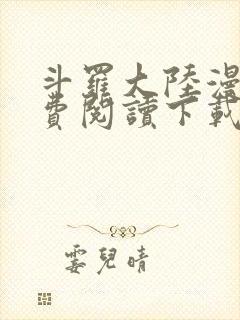 斗羅大陸漫
費閱讀下載
雲兒晴